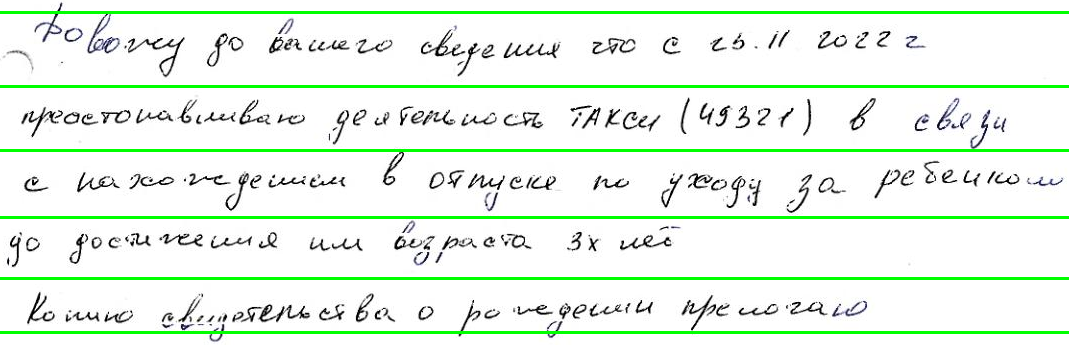 Довожу до вашего сведения что с 25.11 2022 г
преостонавливаю деятельность ТАКСИ (49321) в связи
с нахождением в отпуске по уходу за ребенком
до достижения им возраста 3х лет
Копию свидетельства о рождении прелогаю